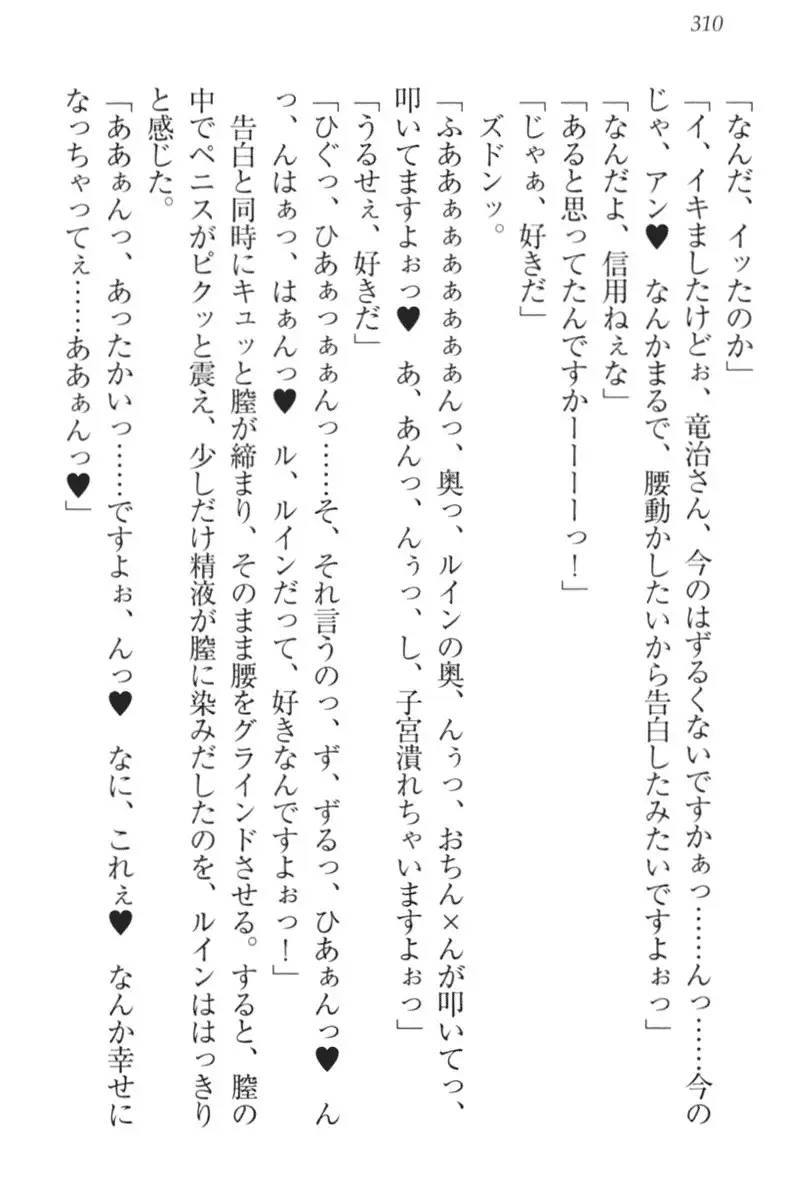 310
「なんだ、イッたのか」
「イ、イキましたけどぉ、竜治さん、今のはずるくないですかぁっ……んっ……今の
じゃ、アン♥　なんかまるで、腰動かしたいから告白したみたいですよぉっ」
「なんだよ、信用ねぇな」
「あると思ってたんですかーーーーっ！」
「じゃぁ、好きだ」
ズドンッ。
「ふああぁぁぁぁぁぁぁんっ、奥っ、ルインの奥、んぅっ、おちん×んが叩いてっ、
叩いてますよぉっ♥　あ、あんっ、んぅっ、し、子宮潰れちゃいますよぉっ」
「うるせぇ、好きだ」
「ひぐっ、ひあぁっぁぁんっ……そ、それ言うのっ、ず、ずるっ、ひあぁんっ♥　ん
っ、んはぁっ、はぁんっ♥　ル、ルインだって、好きなんですよぉっ！」
告白と同時にキュッと膣が締まり、そのまま腰をグラインドさせる。すると、膣の
中でペニスがピクッと震え、少しだけ精液が膣に染みだしたのを、ルインははっきり
と感じた。
「ああぁんっ、あったかいっ……ですよぉ、んっ♥　なに、これぇ♥　なんか幸せに
なっちゃってぇ……ああぁんっ♥」